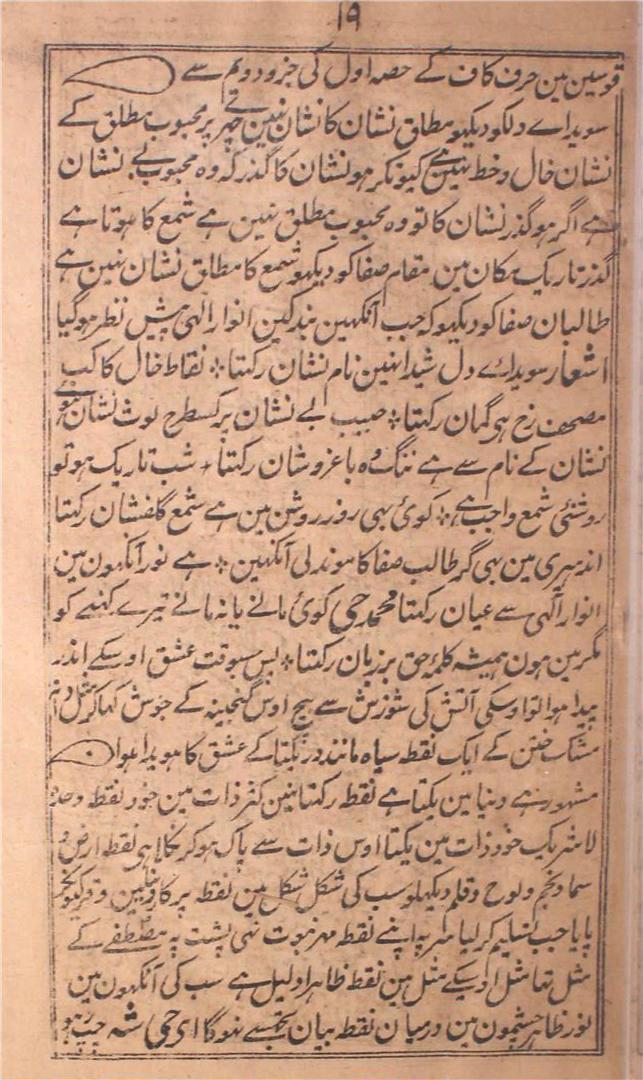 ۱۹
قوسین مین حرف کاف کے حصہ اول کی جزو دوئم سے
سویداے دلکو دیکھو مطلق نشان کا نشان نہین ہے چہرہ پر محبوب مطلق کے
نشان خال و خط نہین ہے کیونکر ہو نشان کا گذر کہ وہ محبوب بے نشان
ہے اگر ہو گذر نشان کا تو وہ محبوب مطلق نہین ہے شمع کا ہوتا ہے
گذر تاریک مکان مین مقام صفا کو دیکھو شمع کا مطلق نشان نہین ہے
طالبان صفا کو دیکھو کہ جب آنکھین بند کین انوار الہی پیش نظر ہو گیا
اشعار سویداے دل شیدا نہین نام نشان رکہتا ٭ نقاط خال کا کب
مصحف رخ ہو گمان رکہتا ٭ حبیب بے نشان پر کسطرح لوث نشان ہووے
نشان کے نام سے ہے ننگ وہ با عز و شان رکہتا ٭ شب تاریک ہو تو
روشنی شمع واجب ہے ٭ کوئی بہی روز روشن مین ہے شمع گلفشان رکہتا
اندہیری مین بہی گر طالب صفا کا موندلی آنکہین ٭ ہے نور آنکہون مین
انوار الہی سے عیان رکہتا محمد حی کوئی مانے یا نہ مانے تیرے کہنے کو
مگر مین ہون ہمیشہ کلمہ حق بر زبان رکہتا ٭ پس جسوقت عشق اوسکے اندر
پیدا ہوا تو اوسکی آتش کی سوزش سے بیچ اوس گنجینہ کے جوش کہا کر مثل
مشک ختن کے ایک نقطہ سیاہ مانند در یکتا کے عشق کا ہویدا ہوا
مشہور ہے دنیا مین یکتا ہے نقطہ رکہتا نہین کثر ذات مین خود نقطہ وحدہ
لاشریک خود ذات مین یکتا اوس ذات سے پاک ہو کر نکلا ہی نقطہ ارض و
سما و نجم و لوح و قلم دیکہلو سب کی شکل شکل مین نقطہ پرکار
پایا جب تسلیم کر لیا سر پہ اپنے نقطہ مہر نبوت نہی پشت پہ مصطفے کے
مثل تہا مثل اوسکے مثل مین نقطہ ظاہر اولیل ہے سب کی آنکہون مین
نور ظاہر چشمون مین درمیان نقطہ بیان تجہسے نہوگا ای حی شہ